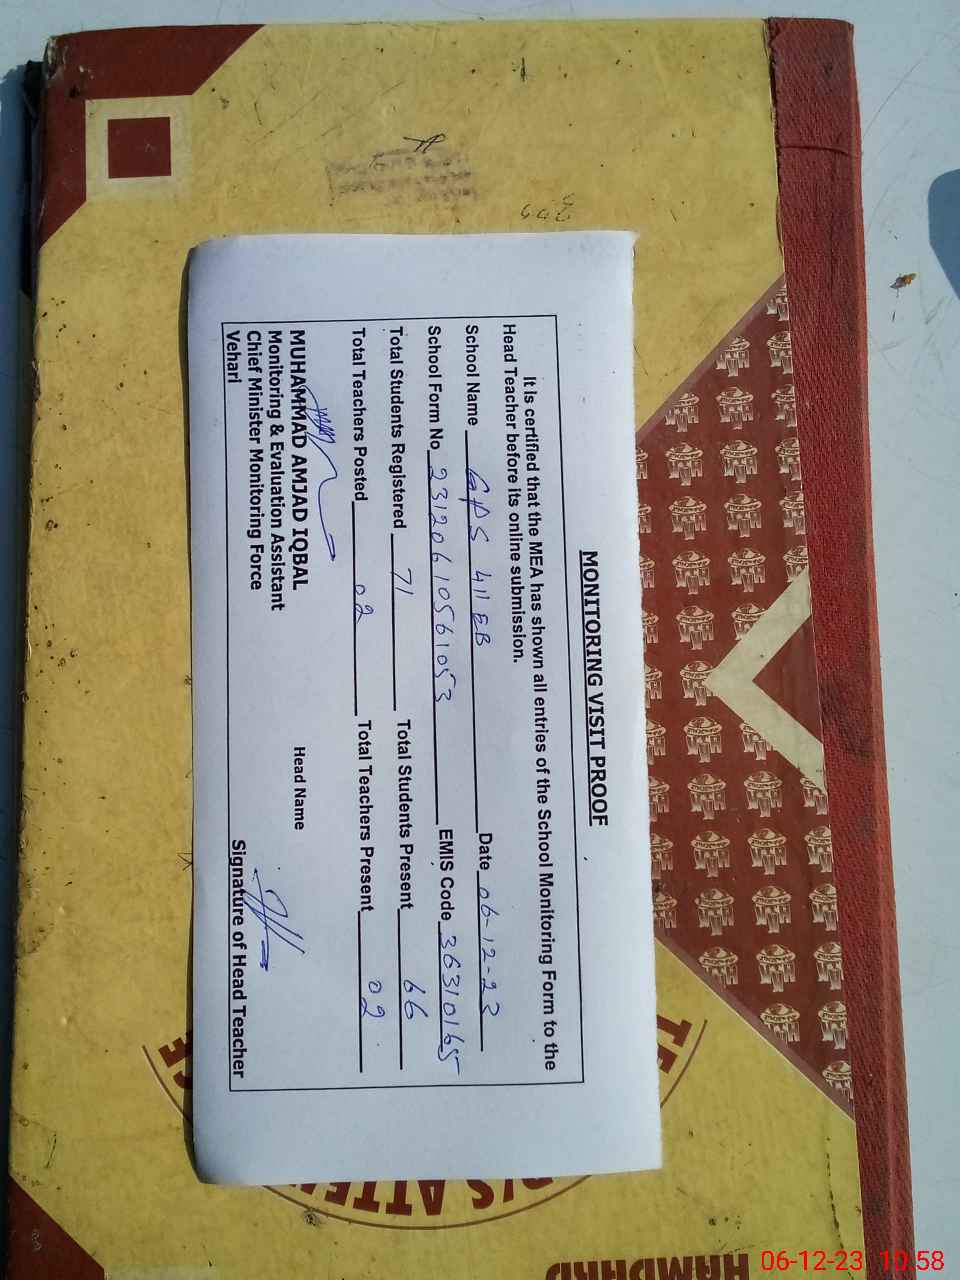 MONITORING VISIT PROOF
It is certified that the MEA has shown all entries of the School Monitoring Form to the
Head Teacher before its online submission.
School Name GPS 411 EB Date 06-12-23
School Form No 23120610561053 EMIS Code 36310165
Total Students Registered 71 Total Students Present 66
Total Teachers Posted 02 Total Teachers Present 02
MUHAMMAD AMJAD IQBAL
Monitoring & Evaluation Assistant
Chief Minister Monitoring Force
Vehari
Head Name
Signature of Head Teacher
HAMDARD
06-12-23 10.58